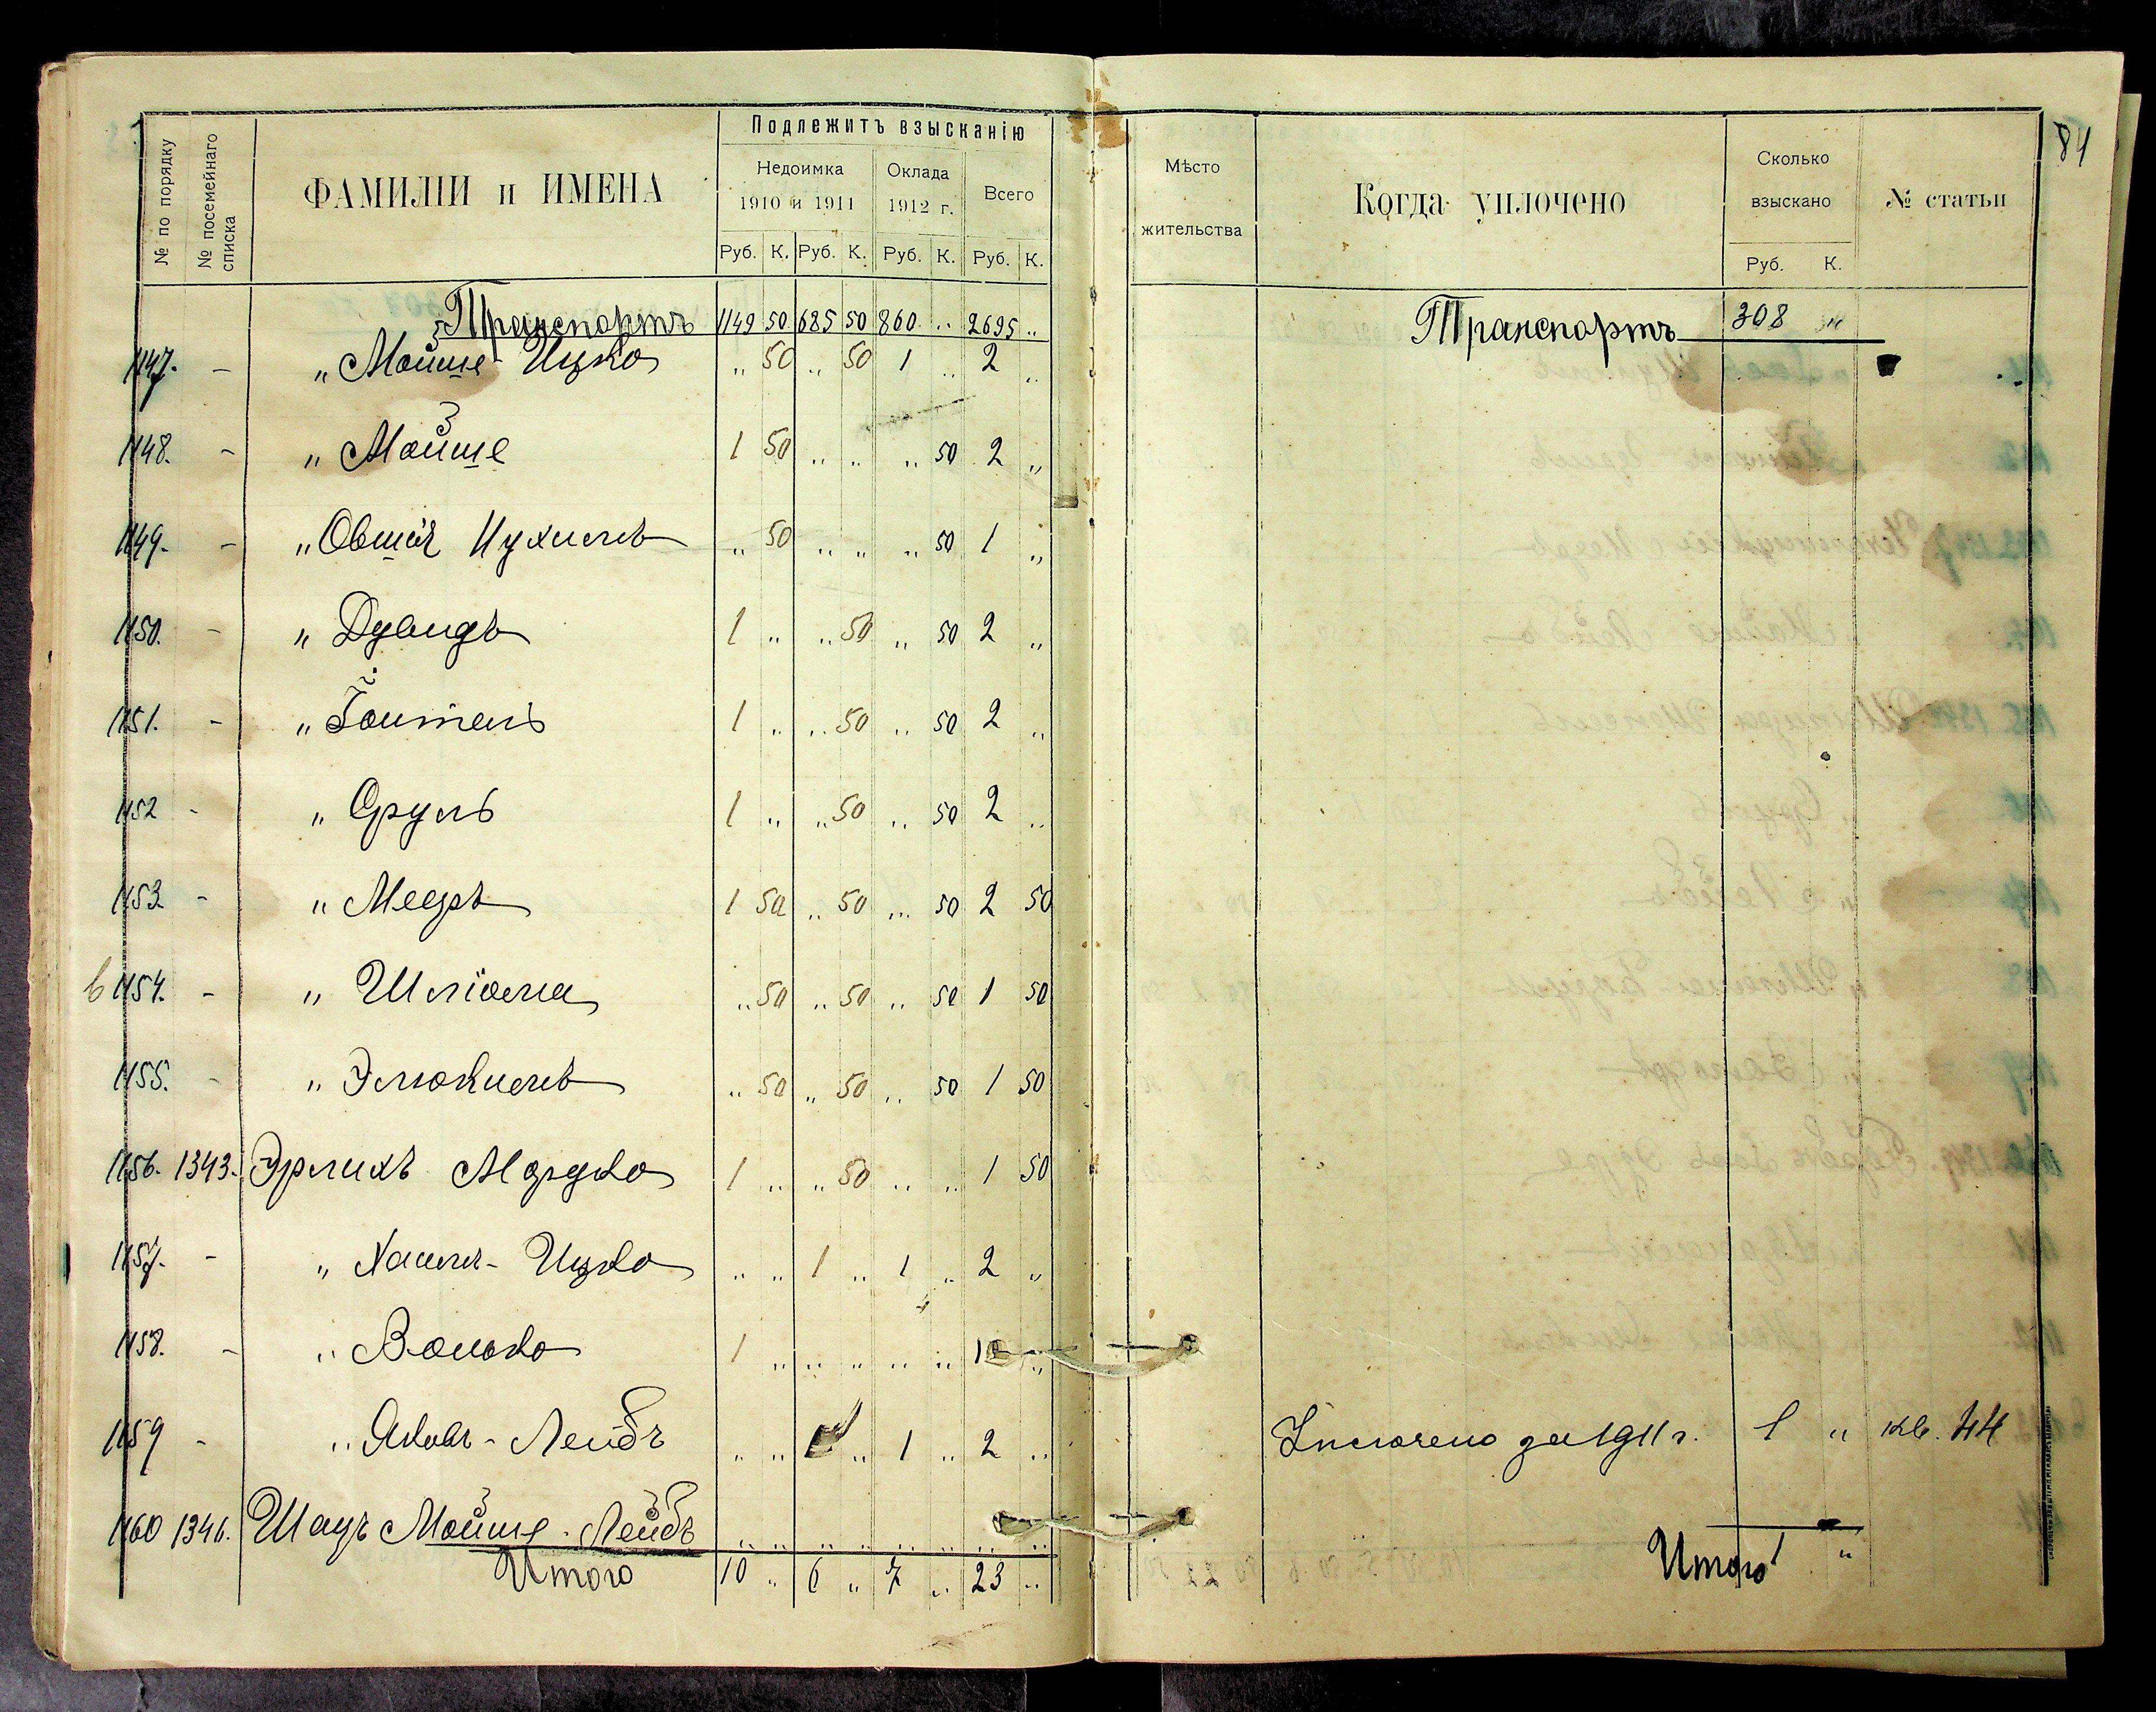 84
№ по порядку
№ посемейнаго списка
ФАМИЛІИ и ИМЕНА
Подлежитъ взысканію
Недоимка 1910 и 1911
Оклада 1912 г.
Всего
Руб. К. Руб. К. Руб. К. Руб. К.
Транспортъ 1149 50 685 50 860 „ 2695 „
1147. - „ Мойше Ицко „ 50 „ 50 1 „ 2 „
1148. - „ Мойше 1 50 „ „ „ 50 2 „
1149. - „ Овшія „ 50 „ „ „ 50 1 „
1150. - „ Дувидъ 1 „ „ 50 „ 50 2 „
1151. - „ 1 „ „ 50 „ 50 2 „
1152 - „ Сруль 1 „ „ 50 „ 50 2 „
1153. - „ Мееръ 1 50 „ 50 „ 50 2 50
1154. - „ Шліома „ 50 „ 50 „ 50 1 50
1155. - „ Элюкимъ „ 50 „ 50 „ 50 1 50
1156. 1343. Эрлихъ Мордко 1 „ „ 50 „ „ 1 50
1157. - „ Хаимъ - Ицко „ „ 1 „ 1 „ 2 „
1158. - „ Волько 1 „ „ „ „ „ 1 „
1159 - „ Яковъ - Лейбъ „ „ 1 „ 1 „ 2 „
1160 1346. Шауъ Мойше - Лейбъ „ „ „ „ „ „ „ „
Итого 10 „ 6 „ 7 „ 23 „
Мѣсто жительства
Когда уплочено
Сколько взыскано
Руб. К.
№ статьи
Транспортъ 308 „
за 1911 г. 1 „ кв. 44
Итого 1 „